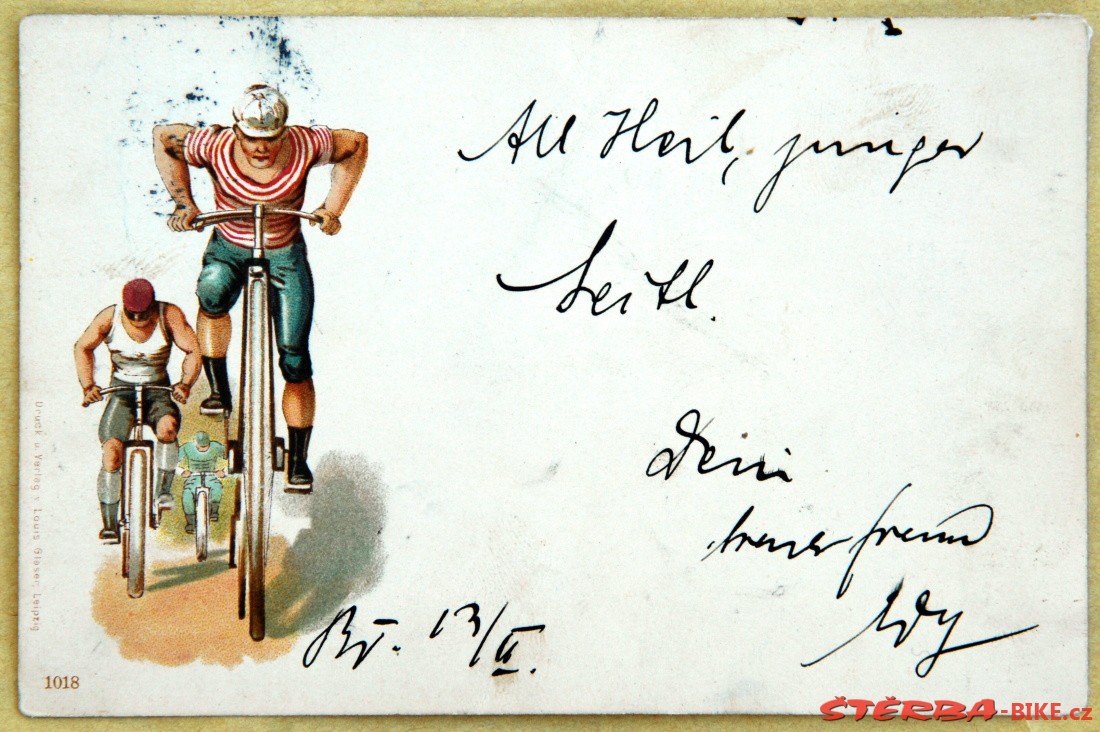 All Heil, junger
Seitl.
Dein
treuer freund
Edy
13/II.
Druck u. Verlag v. Louis Glaser, Leipzig
1018
ŠTĚRBA-BIKE.cz